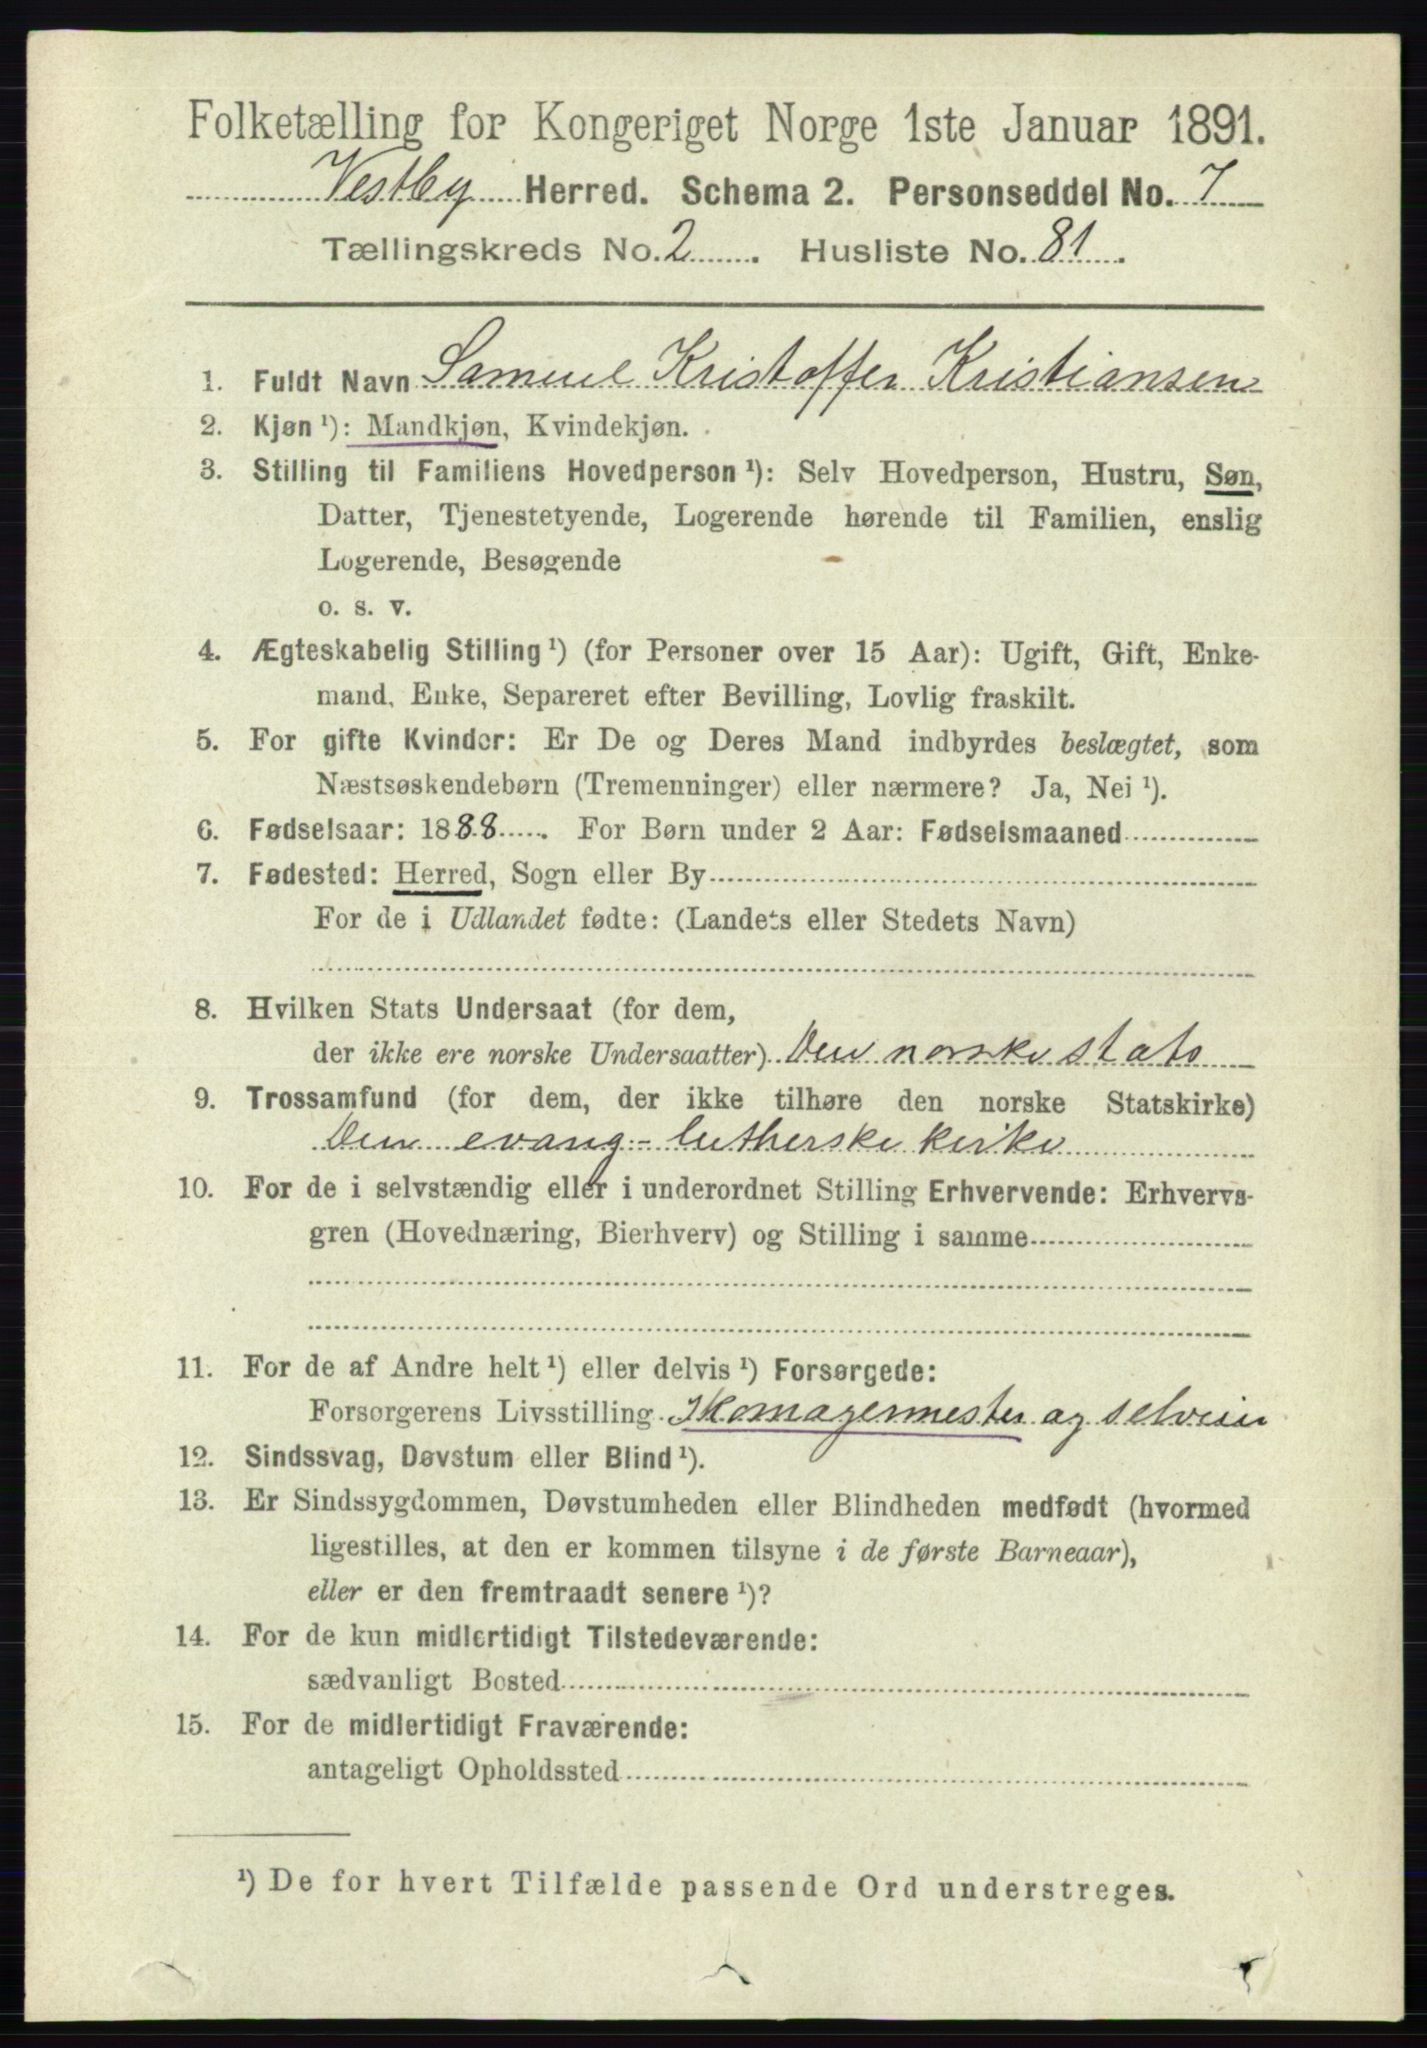 Folketælling for Kongeriget Norge 1ste Januar 1891.
Vestby Herred. Schema 2. Personseddel No. 7
Tællingskreds No. 2. Husliste No. 81.
1. Fuldt Navn Samuel Kristoffer Kristiansen
2. Kjøn ¹): Mandkjøn, Kvindekjøn.
3. Stilling til Familiens Hovedperson ¹): Selv Hovedperson, Hustru, Søn,
Datter, Tjenestetyende, Logerende hørende til Familien, enslig
Logerende, Besøgende
o. s. v.
4. Ægteskabelig Stilling ¹) (for Personer over 15 Aar): Ugift, Gift, Enke-
mand, Enke, Separeret efter Bevilling, Lovlig fraskilt.
5. For gifte Kvinder: Er De og Deres Mand indbyrdes beslægtet, som
Næstsøskendebørn (Tremenninger) eller nærmere? Ja, Nei ¹).
6. Fødselsaar: 1888. For Børn under 2 Aar: Fødselsmaaned
7. Fødested: Herred, Sogn eller By
For de i Udlandet fødte: (Landets eller Stedets Navn)
8. Hvilken Stats Undersaat (for dem,
der ikke ere norske Undersaatter) Den norske stats
9. Trossamfund (for dem, der ikke tilhøre den norske Statskirke)
Den evang-lutherske kirke
10. For de i selvstændig eller i underordnet Stilling Erhvervende: Erhvervs-
gren (Hovednæring, Bierhverv) og Stilling i samme
11. For de af Andre helt ¹) eller delvis ¹) Forsørgede:
Forsørgerens Livsstilling Skomagermester og selveier
12. Sindssvag, Døvstum eller Blind ¹).
13. Er Sindssygdommen, Døvstumheden eller Blindheden medfødt (hvormed
ligestilles, at den er kommen tilsyne i de første Barneaar),
eller er den fremtraadt senere ¹)?
14. For de kun midlertidigt Tilstedeværende:
sædvanligt Bosted
15. For de midlertidigt Fraværende:
antageligt Opholdssted
¹) De for hvert Tilfælde passende Ord understreges.